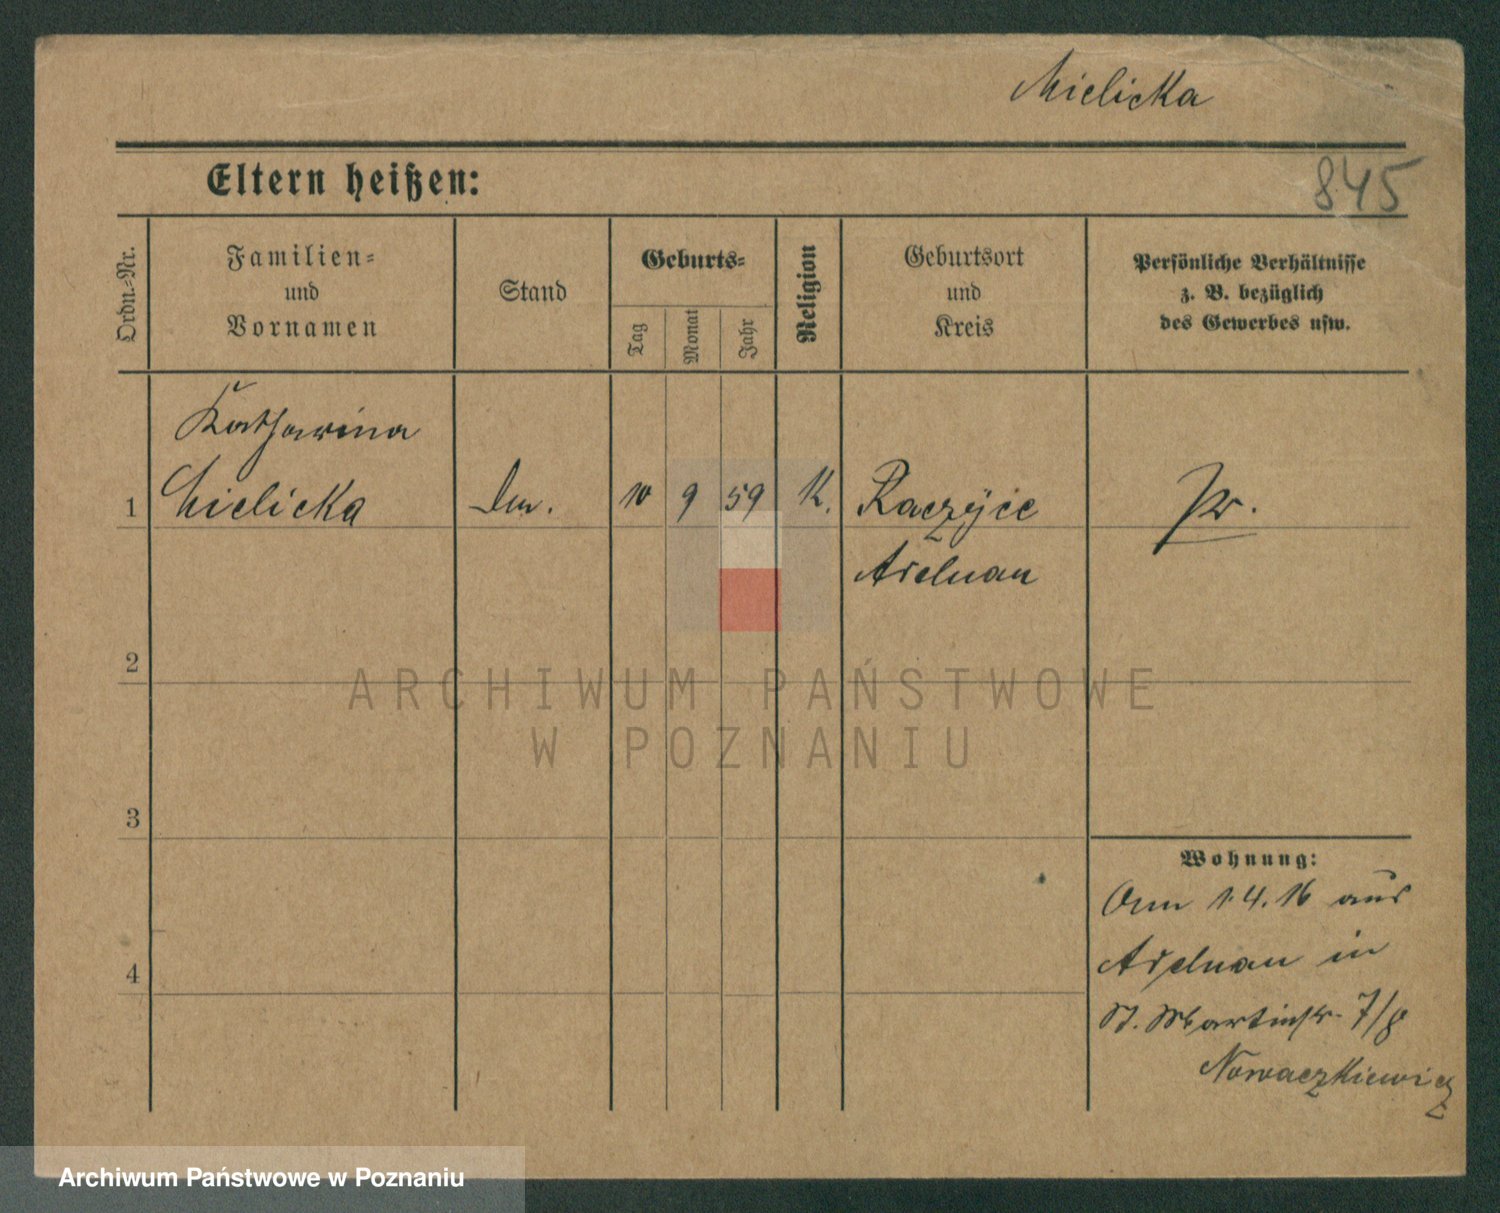 Mielicka
845
Eltern heißen:
Ordn.-Nr.
Familien-
und
Vornamen
Stand
Geburts-
Tag
Monat
Jahr
Religion
Geburtsort
und
Kreis
Persönliche Verhältnisse
z. B. bezüglich
des Gewerbes usw.
Katharina
1 Mielicka 10 9 59 K. Raczyce
Adelnau
2
ARCHIWUM PAŃSTWOWE
W POZNANIU
3
Wohnung:
1.4.16 aus
4
Adelnau in
St. Martinstr. 7/8
Nowaczkiewicz
Archiwum Państwowe w Poznaniu